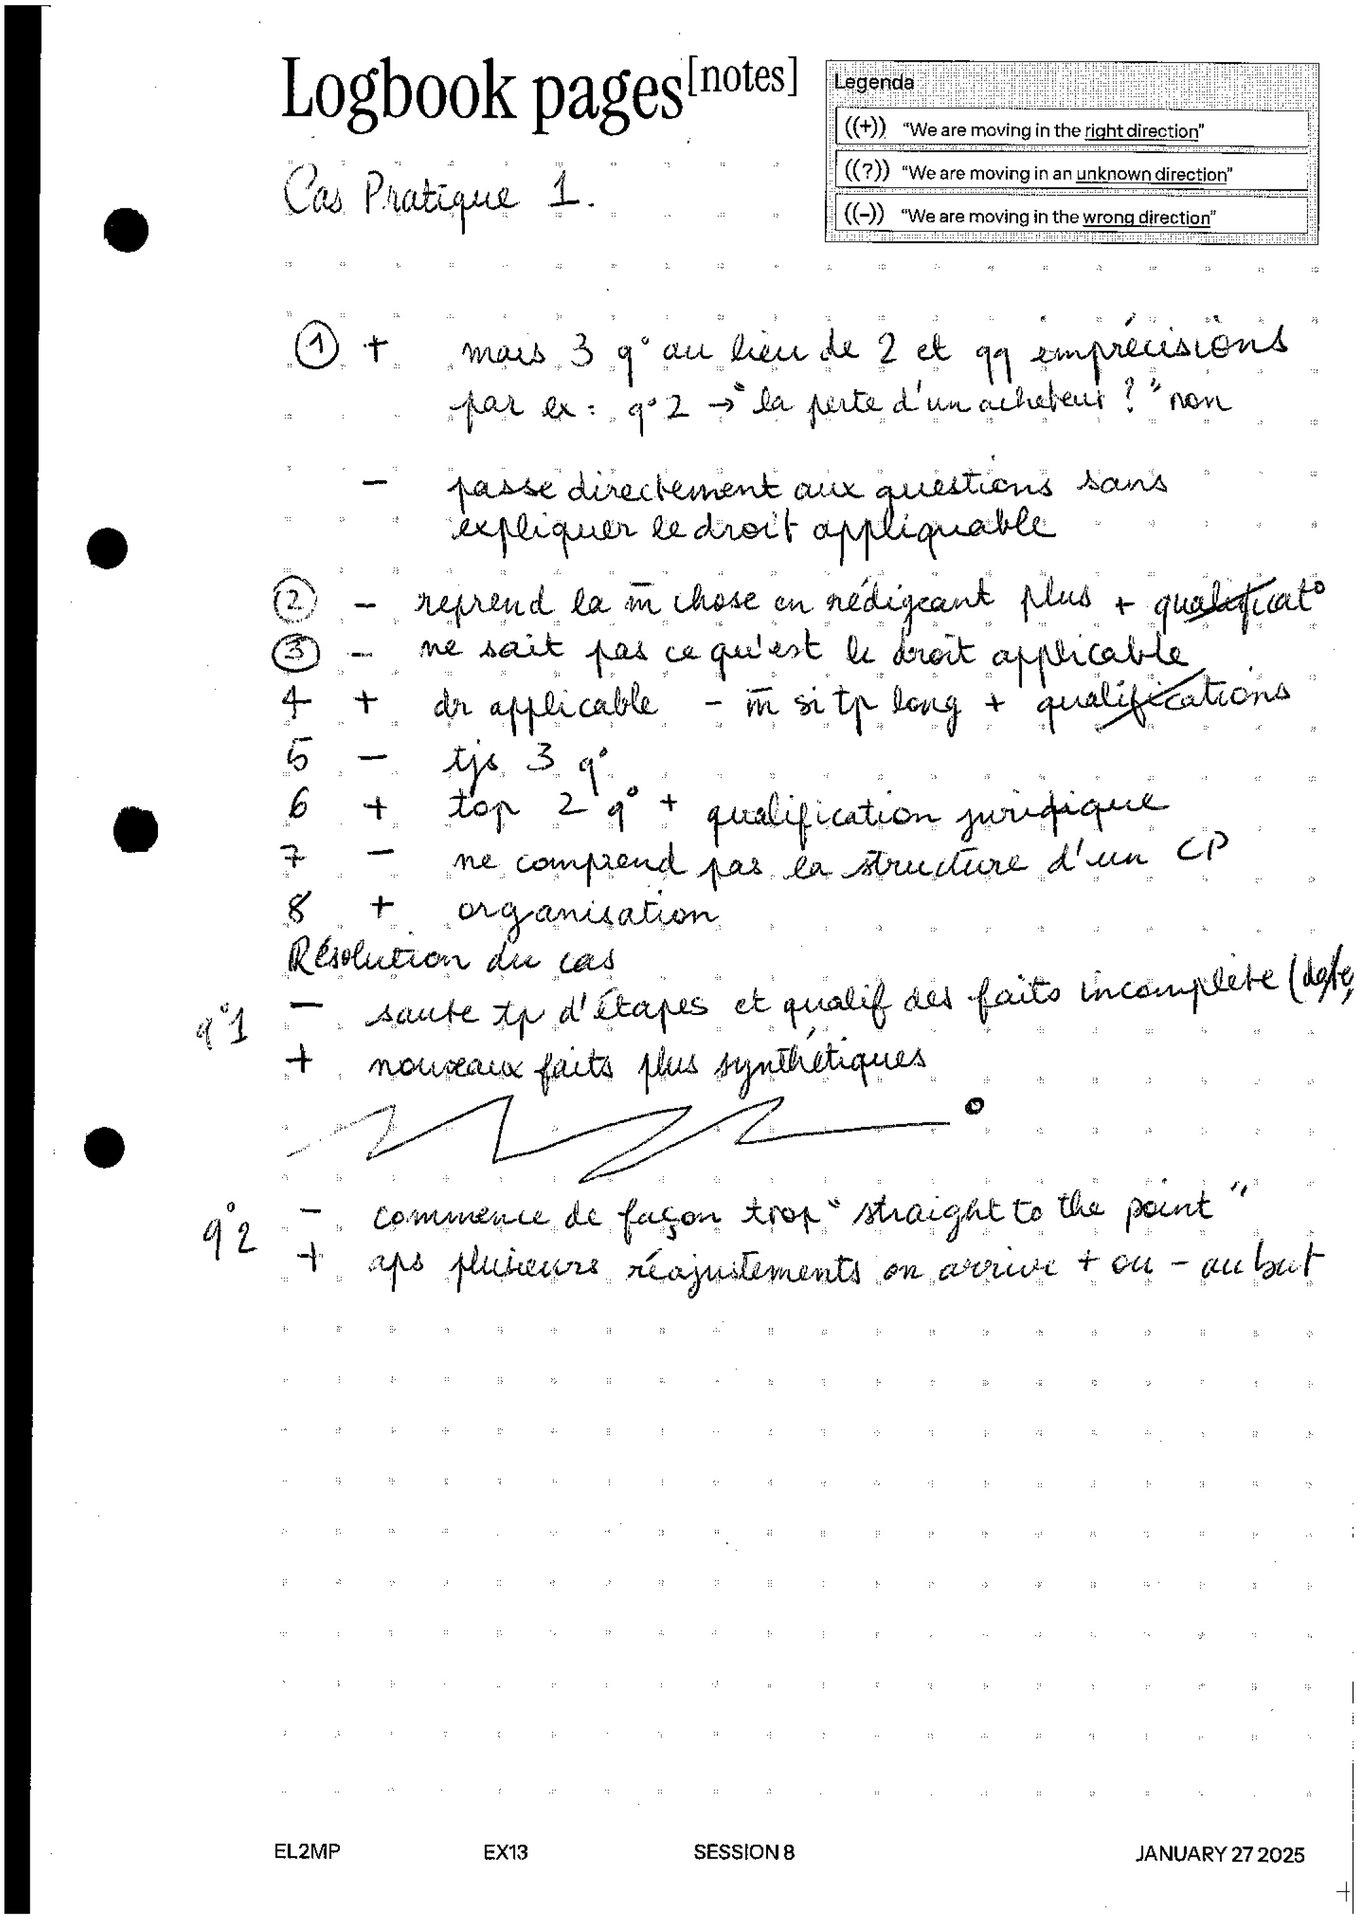 Logbook pages [notes]
Legenda
((+)) "We are moving in the right direction"
((?)) "We are moving in an unknown direction"
((-)) "We are moving in the wrong direction"
Cas Pratique 1.
① + mais 3 q° au lieu de 2 et qq imprécisions
par ex : q°2 → "la perte d'un acheteur ?" non
- passe directement aux questions sans
expliquer le droit appliquable
② - reprend la m̄ chose en rédigeant plus + qualificat°
③ - ne sait pas ce qu'est le droit applicable
4 + dr applicable - m̄ si tp long + qualifications
5 - tjs 3 q°
6 + top 2 q° + qualification juridique
7 - ne comprend pas la structure d'un CP
8 + organisation
Résolution du cas
q°1 - saute tp d'étapes et qualif des faits incomplète (date,
+ nouveaux faits plus synthétiques
q°2 - commence de façon trop "straight to the point"
+ aps plusieurs réajustements on arrive + ou - au but
EL2MP EX13 SESSION 8 JANUARY 27 2025